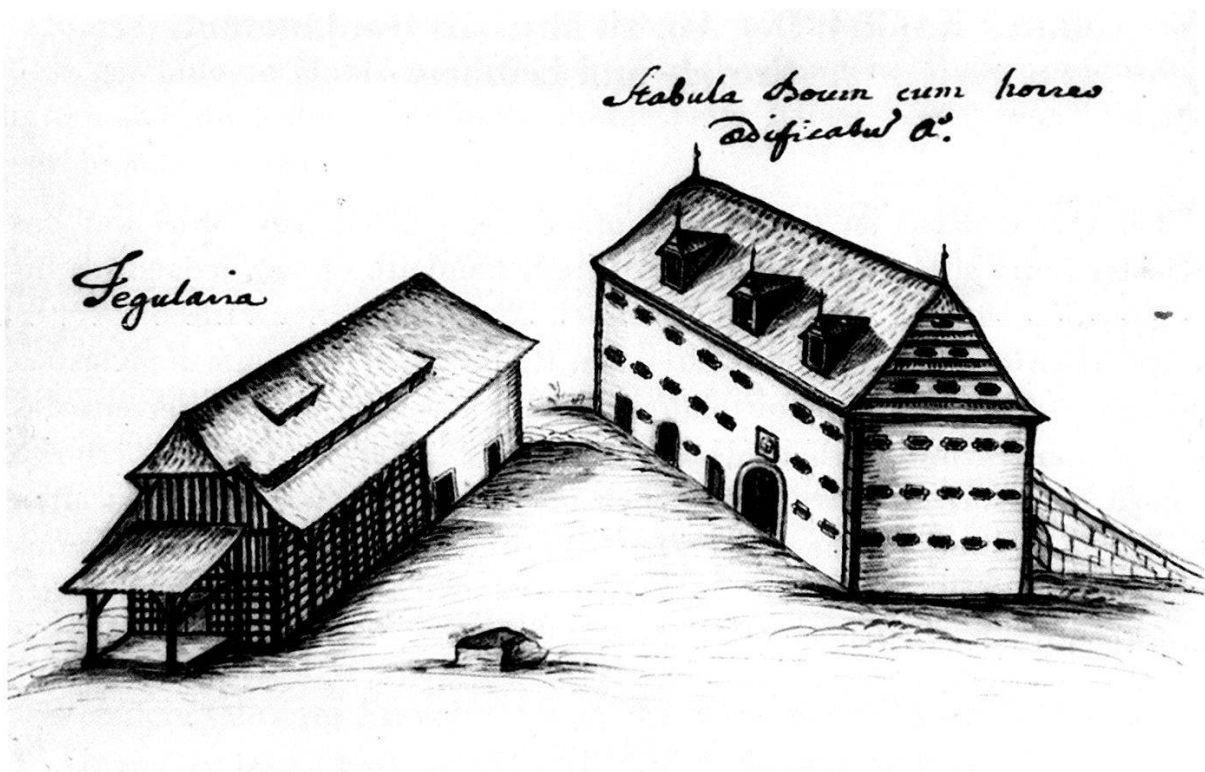 Stabula Boum cum horreo
ædificatu⁹ Aº.
Tegularia